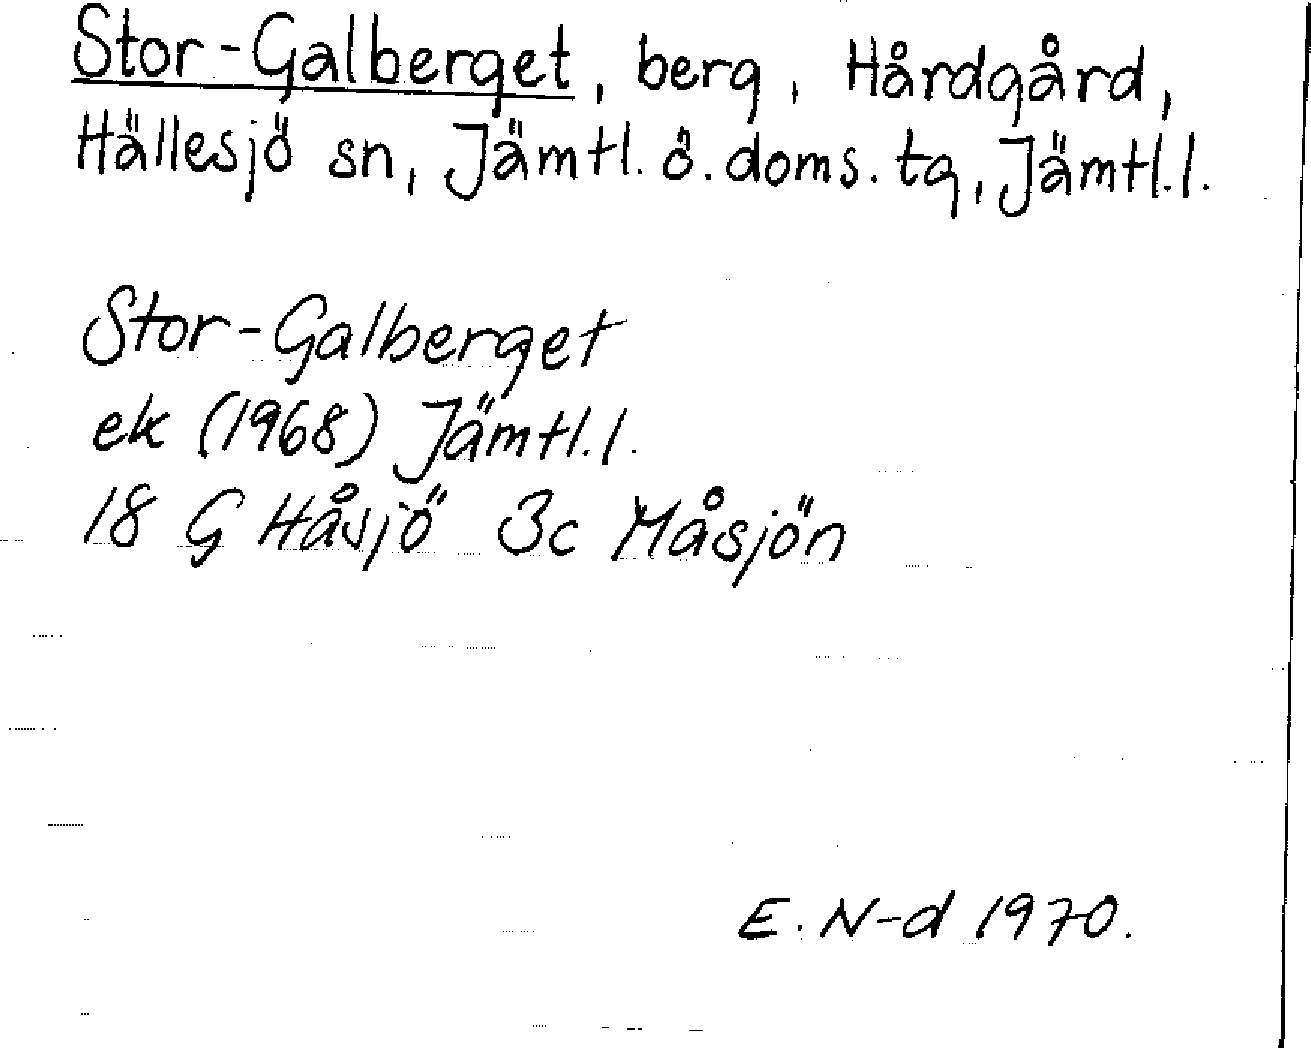 Stor-Galberget, berg, Hårdgård,
Hällesjö sn, Jämtl. ö. doms. tg, Jämtl. l.
Stor-Galberget
ek (1968) Jämtl. l.
18 G Håsjö 3c Måsjön
E. N-d 1970.